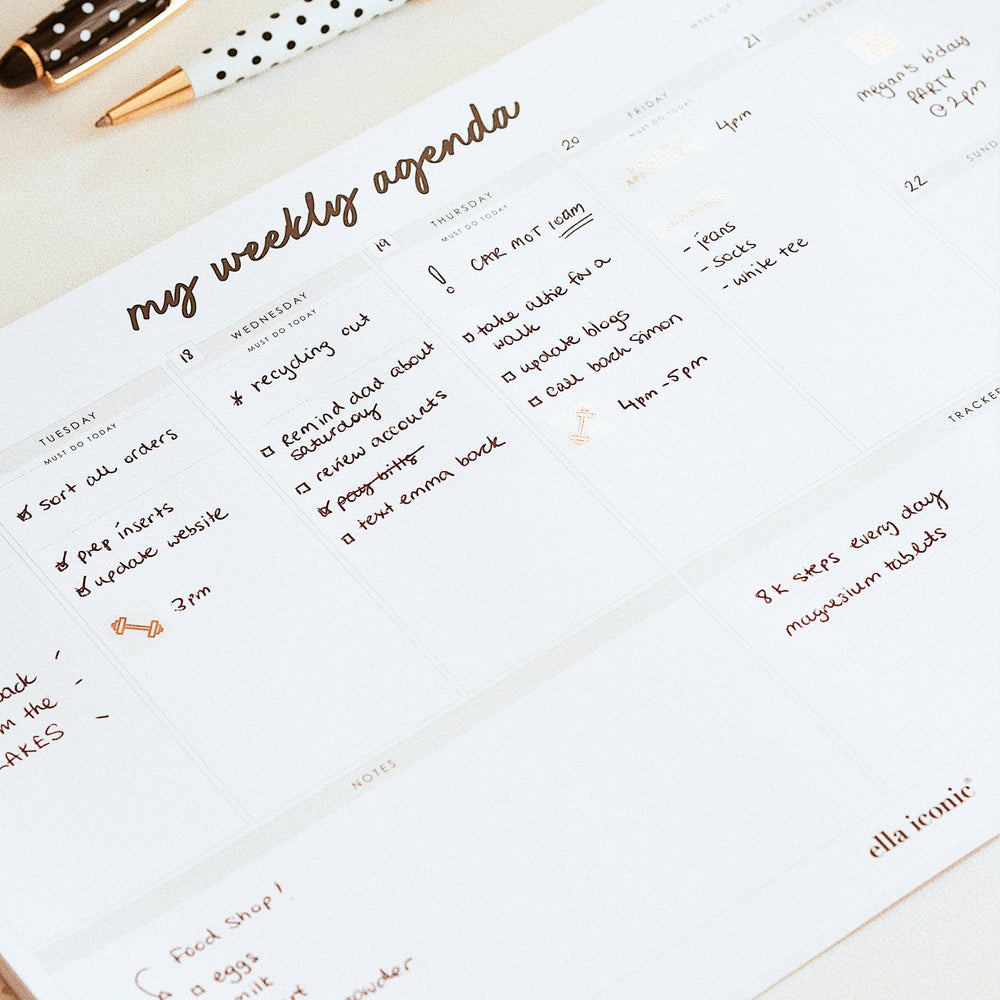 my weekly agenda
WEEK OF
TUESDAY
MUST DO TODAY
sort all orders
prep inserts
update website
3pm
back
the
LAKES
18
WEDNESDAY
MUST DO TODAY
* recycling out
remind dad about
saturday
review accounts
pay bills
text emma back
19
THURSDAY
MUST DO TODAY
! CAR MOT 10am
take alfie for a
walk
update blogs
call back simon
4pm-5pm
20
FRIDAY
MUST DO TODAY
APPOINTMENT
4pm
- jeans
- socks
- white tee
21
megan's b'day
PARTY
@ 2pm
22
NOTES
Food shop!
eggs
milk
8k steps every day
magnesium tablets
ella iconic®